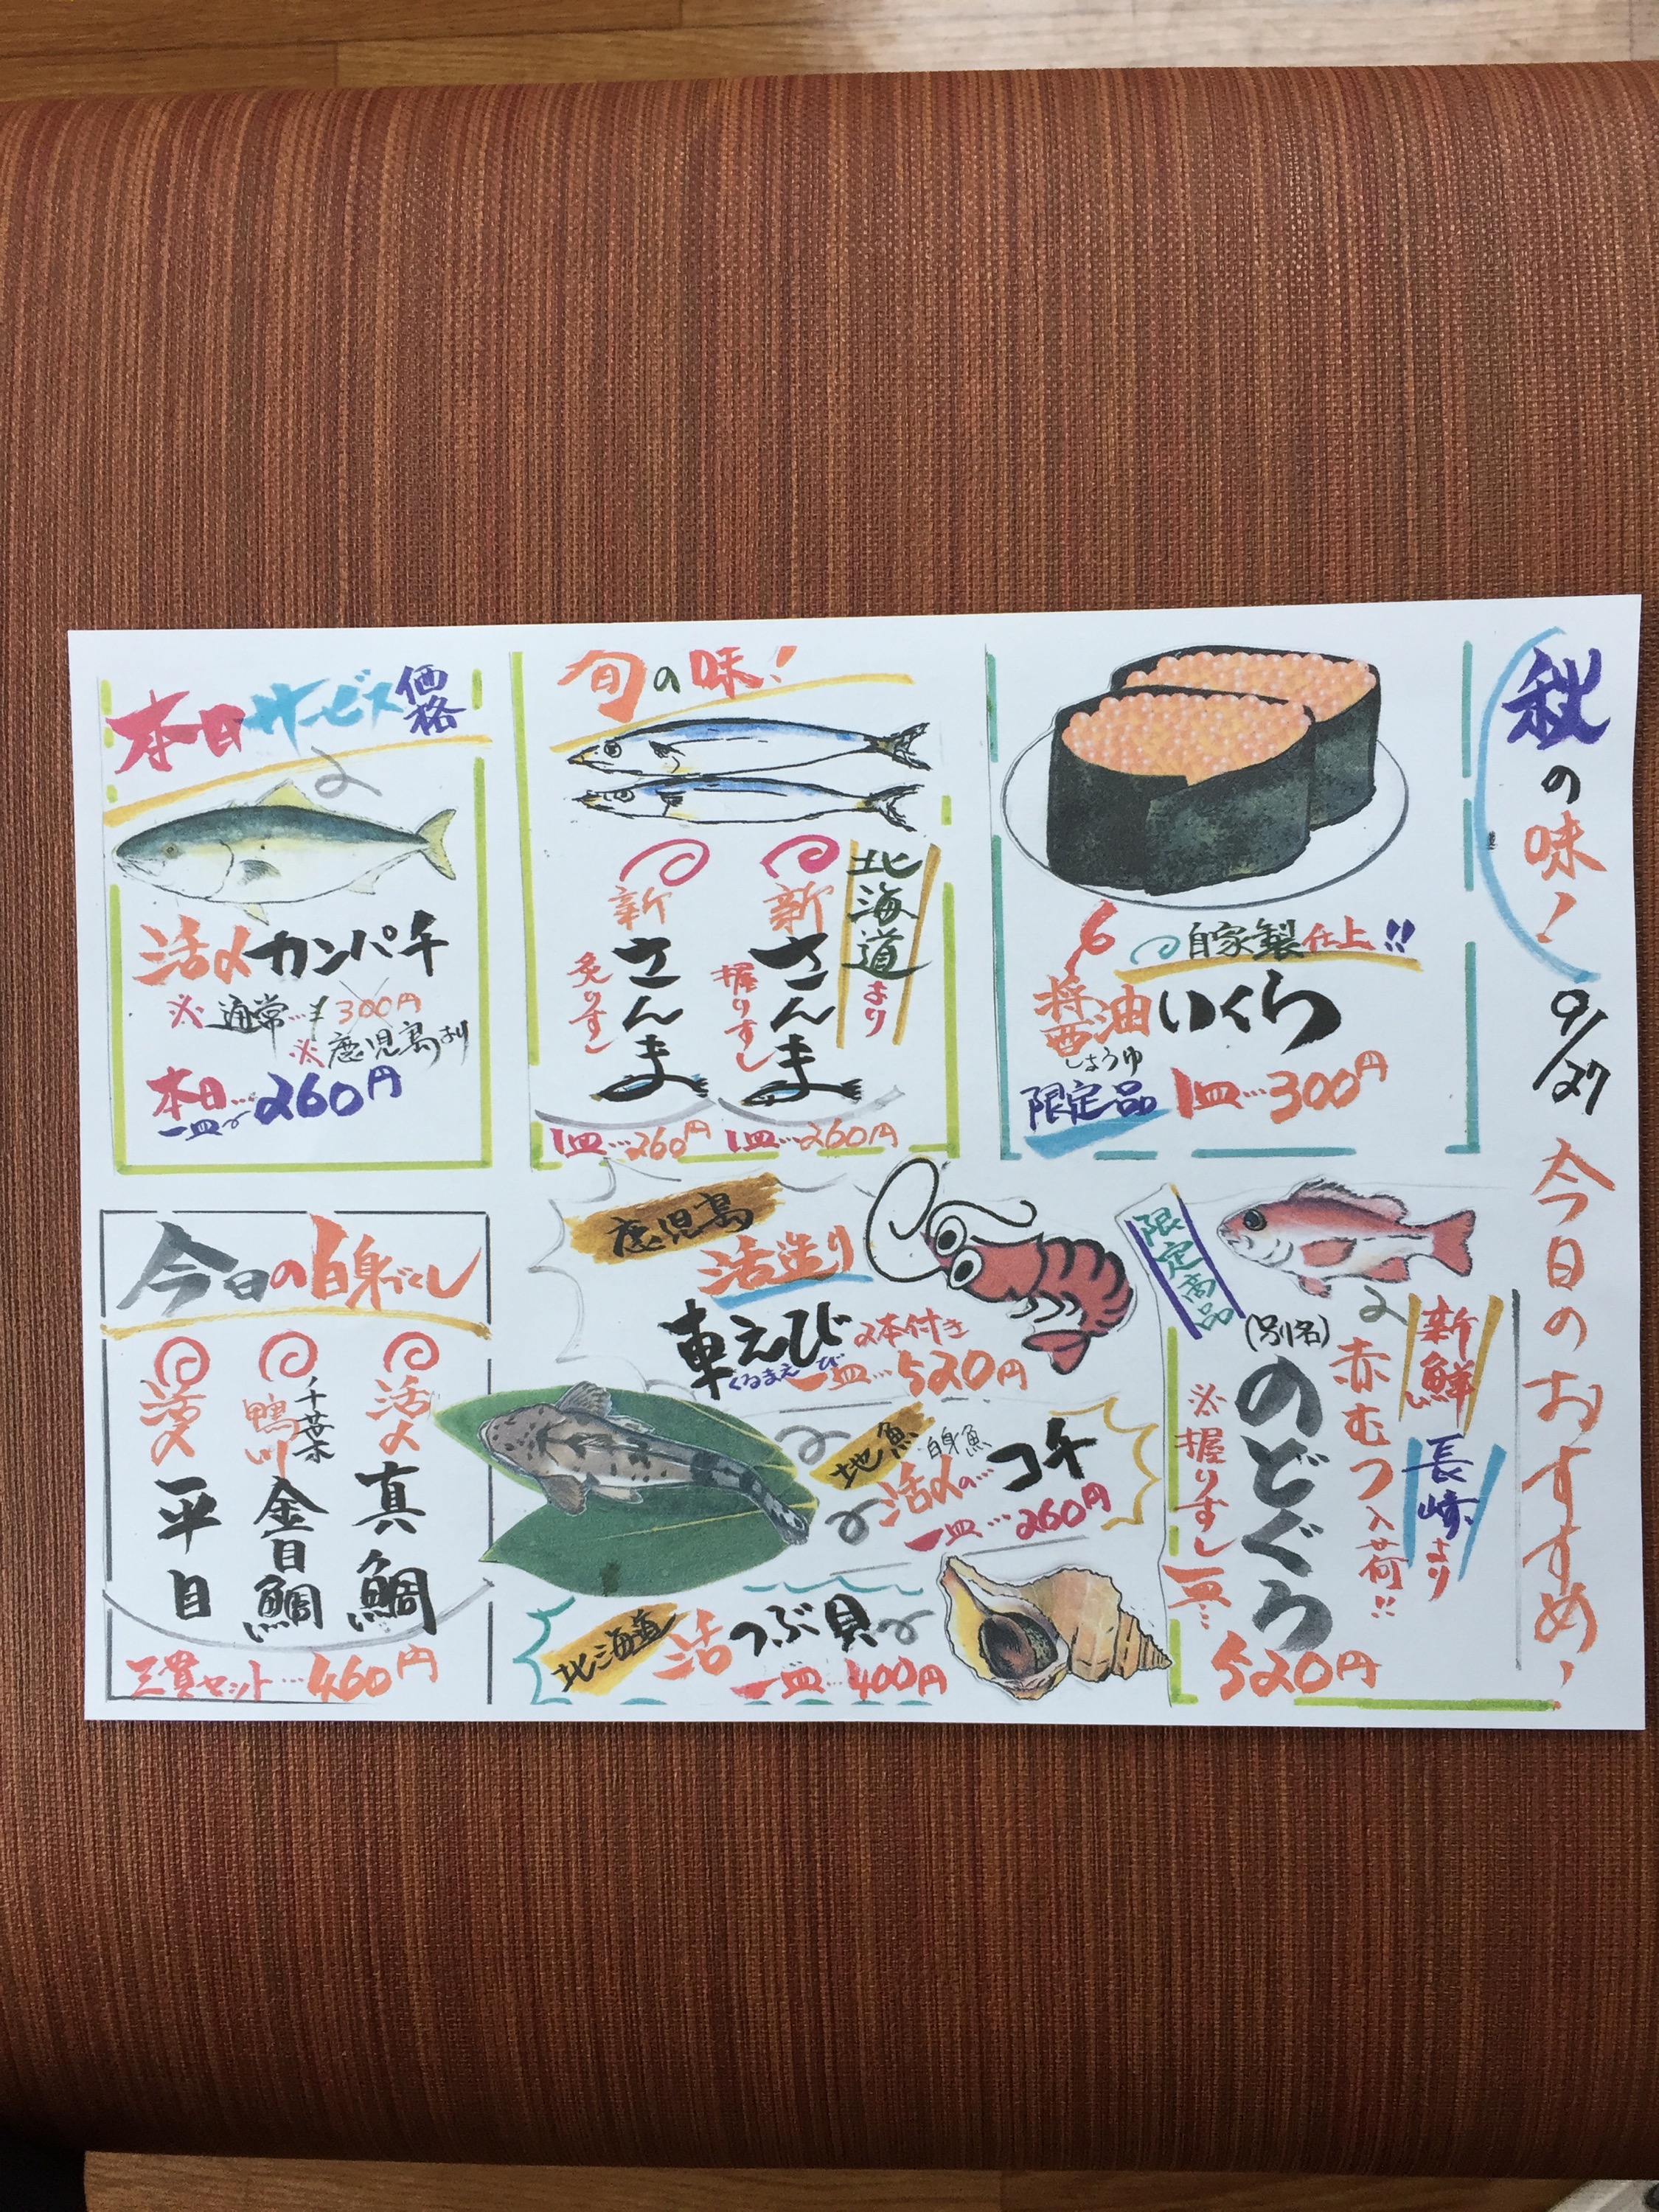 秋の味!
9/27
今日のおすすめ!
自家製仕上!!
醤油いくら
しょうゆ
限定品 1皿…300円
旬の味!
北海道より
新さんま
握りずし
1皿…260円
新さんま
炙りずし
1皿…260円
本日サービス価格
活〆カンパチ
※通常…300円
※鹿児島より
本日…260円
一皿
限定商品
新鮮
長崎より
赤むつ入荷!!
(別名)
のどぐろ
※握りずし一皿…
520円
鹿児島
活造り
車えび 2本付き
くるまえび
一皿…520円
地魚
白身魚
活〆の…コチ
一皿…260円
北海道
活つぶ貝
一皿…400円
今日の白身づくし
活〆
真鯛
千葉
鴨川
金目鯛
活〆
平目
三貫セット…460円